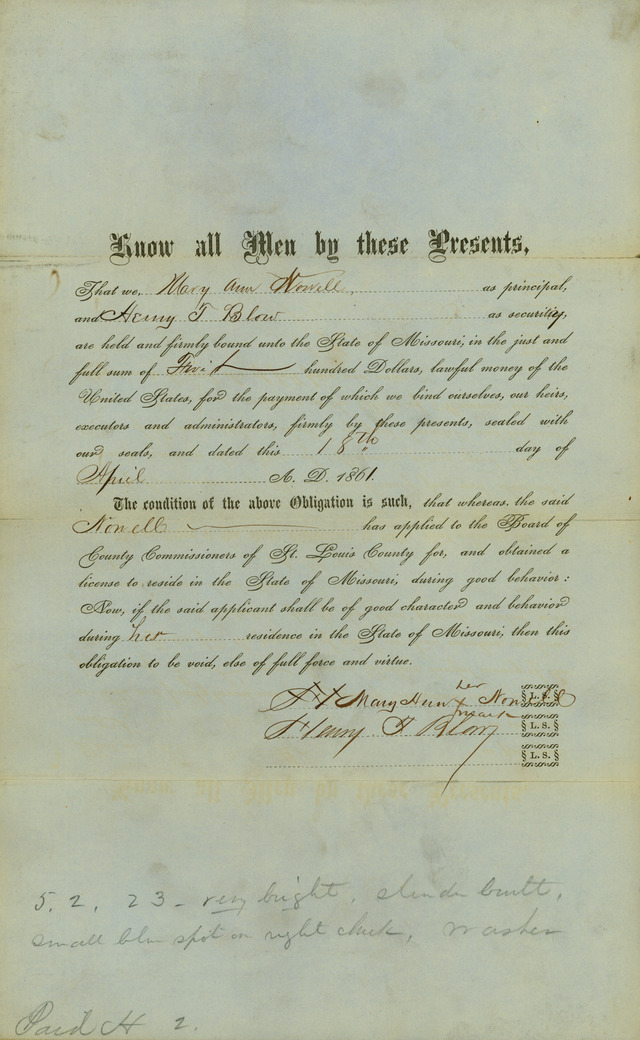 Know all Men by these Presents,
That we, Mary Ann Nowell, as principal,
and Henry T Blow as security,
are held and firmly bound unto the State of Missouri, in the just and
full sum of hundred Dollars, lawful money of the
United States, for the payment of which we bind ourselves, our heirs,
executors and administrators, firmly by these presents, sealed with
our seals, and dated this 18th day of
April A. D. 1861.
The condition of the above Obligation is such, that whereas the said
Nowell has applied to the Board of
County Commissioners of St. Louis County for, and obtained a
license to reside in the State of Missouri, during good behavior:
Now, if the said applicant shall be of good character and behavior
during her residence in the State of Missouri, then this
obligation to be void, else of full force and virtue.
her
Mary Ann X Nowell L. S.
mark
Henry T Blow L. S.
L. S.
5. 2. 23 - very bright, slender built,
small blue spot on right cheek, washer
Paid 2.